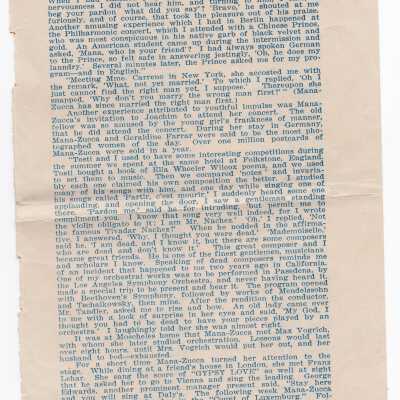 When I had
nervousness I did not hear him, and turning to
beg your pardon, what did you say? 'Bravo,' he shouted at me
furiously, and of course, that took the pleasure out of his praise.
Another amusing experience which I had in Berlin happened at
the Philharmonic concert, which I attended with a Chinese Prince,
who was most conspicuous in his native garb of black velvet and
gold. An American student came up during the intermission and
asked, 'Mana, who is your friend?' I had always spoken German
to the Prince, so felt safe in answering jestingly, 'Oh, he does my
laundry.' Several minutes later, the Prince asked me for my pro-
gram—and in English."
"Meeting Mme. Carreno in New York, she accosted me with
the remark, 'What, not yet married.' To which I replied, 'Oh I
just cannot find the right man yet, I suppose.' Thereupon she
snapped, 'Why don't you marry the wrong man first?'" (Mana-
Zucca has since married the right man first.)
Another experience attributed to youthful impulse was Mana-
Zucca's invitation to Joachim to attend her concert. The old
fellow was so amused by the young girl's frankness of manner,
that he did attend the concert. During her stay in Germany,
Mana-Zucca and Geraldine Farrar were said to be the most pho-
tographed women of the day. Over one million postcards of
Mana-Zucca were sold in a year.
"Tosti and I used to have some interesting competitions during
the summer we spent at the same hotel at Folkstone, England.
Tosti bought a book of Ella Wheeler Wilcox poems, and we used
to set them to music. Then we compared 'notes' and invaria-
bly each one claimed his own composition the better. I studied
many of his songs with him, and one day while singing one of
his songs called 'Partir, c'est mourir,' I suddenly heard some one
applauding, and opening the door, I saw a gentleman standing
there. 'Pardon me,' said he for intruding, 'but permit me to
compliment you. I know that song very well indeed, for I wrote
the violin obligato to it; I am Mr. Nachez.' 'Oh,' I replied, 'Not
the famous Tivadar Nachez?' When he nodded in the affirma-
tive, I answered, 'Why, I thought you were dead.' 'Mademoiselle,'
said he, 'I am dead, and I know it, but there are some composers
who are dead and don't know it.' This great composer and I
became great friends. He is one of the finest gentlemen, musicians
and scholars I know. Speaking of dead composers reminds me
of an incident that happened to me two years ago in California.
One of my orchestral works was to be performed in Pasadena, by
the Los Angeles Symphony Orchestra, and never having heard it,
made a special trip to be present and hear it. The program opened
with Beethoven's Symphony, followed by works of Mendelssohn
and Tschaikowsky, then mine. After the rendition the conductor,
Mr. Tandler, asked me to rise and bow. An old lady came over
to me with a look of surprise in her eyes and said, 'My God, I
thought you had to be dead to have your pieces played by an
orchestra.' I laughingly told her she was almost right.
It was at Moscheles home that Mana-Zucca met Max Vogrich,
with whom she later studied orchestration. Lessons would last
over eight hours, until Mrs. Vogrich would put her out, and her
husband to bed—exhausted.
For a short time Mana-Zucca turned her attention to the
stage. While dining at a friend's house in London, she met Franz
Lehar. She sang the score of "GYPSY LOVE" so well at sight
that he asked her to go to Vienna and sing the leading
Edwards, another prominent manager present said, "Stay here
and you will sing at Daly's. The following week Mana-Zucca
"Count of Luxemburg." Fol-